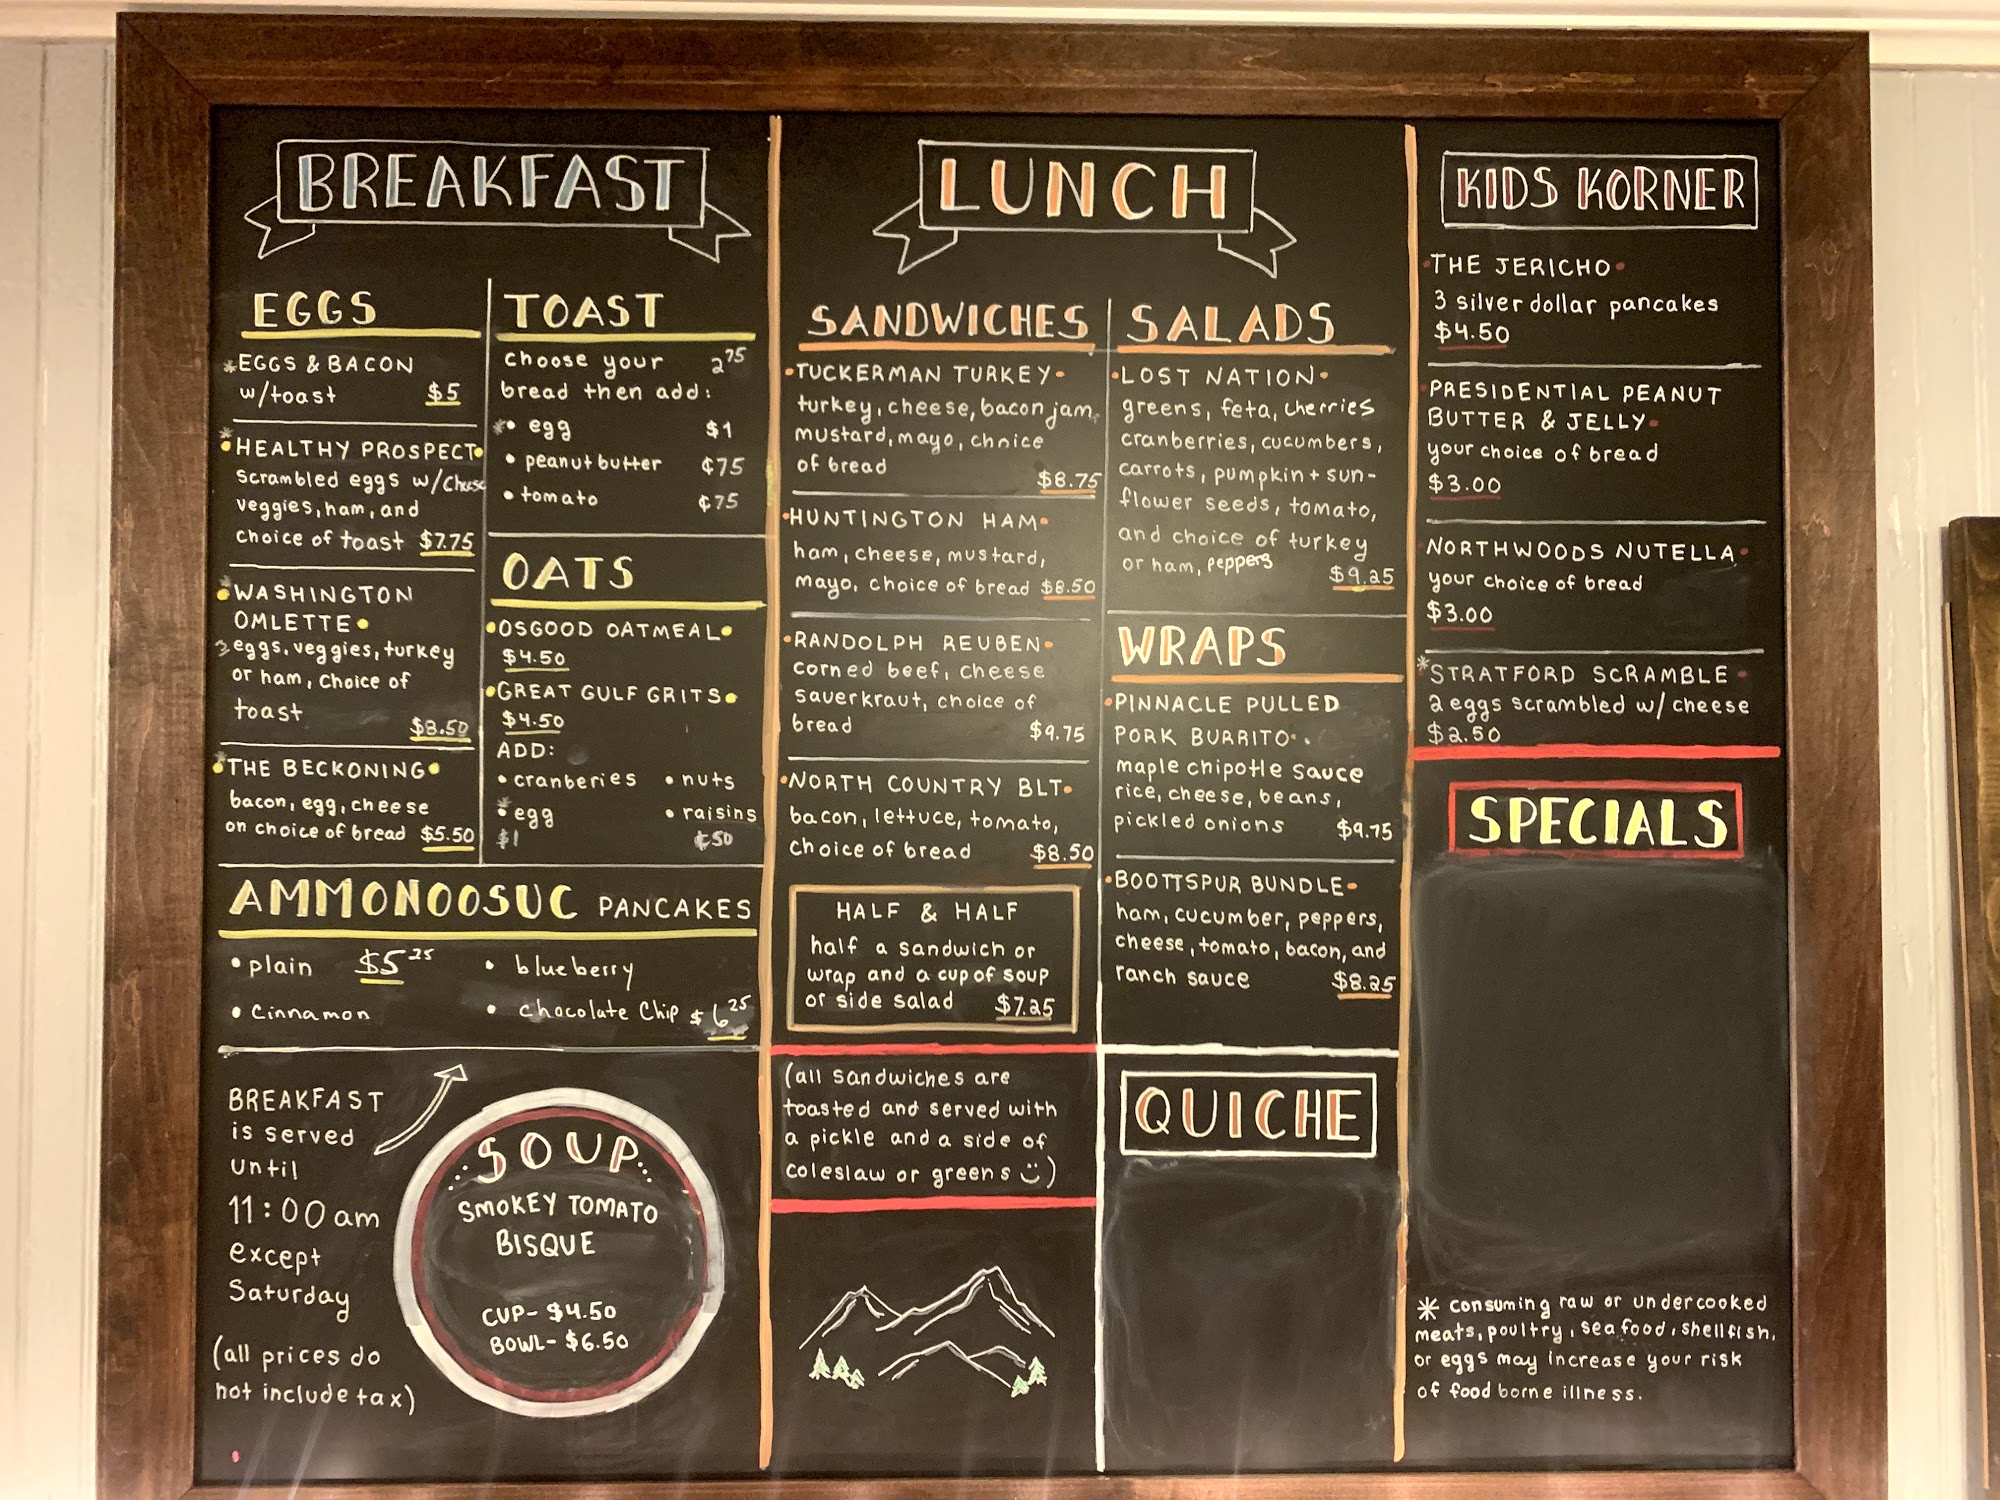 BREAKFAST
EGGS
*EGGS & BACON
w/toast $5
*
•HEALTHY PROSPECT•
scrambled eggs w/cheese
veggies, ham, and
choice of toast $7.75
*
•WASHINGTON
OMLETTE•
3 eggs, veggies, turkey
or ham, choice of
toast
$8.50
*
•THE BECKONING•
bacon, egg, cheese
on choice of bread $5.50
TOAST
choose your 2 75
bread then add:
*• egg $1
• peanut butter ¢75
• tomato ¢75
OATS
•OSGOOD OATMEAL•
$4.50
•GREAT GULF GRITS•
$4.50
ADD:
• cranberies • nuts
*
• egg • raisins
$1 ¢50
AMMONOOSUC PANCAKES
• plain $5 25 • blueberry
• Cinnamon • chocolate Chip $6 25
BREAKFAST
is served
until
11:00 am
except
Saturday
(all prices do
not include tax)
SOUP
SMOKEY TOMATO
BISQUE
CUP- $4.50
BOWL- $6.50
LUNCH
SANDWICHES
•TUCKERMAN TURKEY•
turkey, cheese, bacon jam,
mustard, mayo, choice
of bread
$8.75
•HUNTINGTON HAM•
ham, cheese, mustard,
mayo, choice of bread $8.50
•RANDOLPH REUBEN•
corned beef, cheese
sauerkraut, choice of
bread $9.75
•NORTH COUNTRY BLT•
bacon, lettuce, tomato,
choice of bread $8.50
HALF & HALF
half a sandwich or
wrap and a cup of soup
or side salad $7.25
(all sandwiches are
toasted and served with
a pickle and a side of
coleslaw or greens)
SALADS
•LOST NATION•
greens, feta, cherries
cranberries, cucumbers,
carrots, pumpkin + sun-
flower seeds, tomato,
and choice of turkey
or ham, peppers $9.25
WRAPS
•PINNACLE PULLED
PORK BURRITO•
maple chipotle sauce
rice, cheese, beans,
pickled onions $9.75
•BOOTTSPUR BUNDLE•
ham, cucumber, peppers,
cheese, tomato, bacon, and
ranch sauce $8.25
QUICHE
KIDS KORNER
•THE JERICHO•
3 silver dollar pancakes
$4.50
PRESIDENTIAL PEANUT
BUTTER & JELLY•
your choice of bread
$3.00
NORTHWOODS NUTELLA•
your choice of bread
$3.00
*STRATFORD SCRAMBLE•
2 eggs scrambled w/ cheese
$2.50
SPECIALS
* consuming raw or undercooked
meats, poultry, seafood, shellfish,
or eggs may increase your risk
of food borne illness.